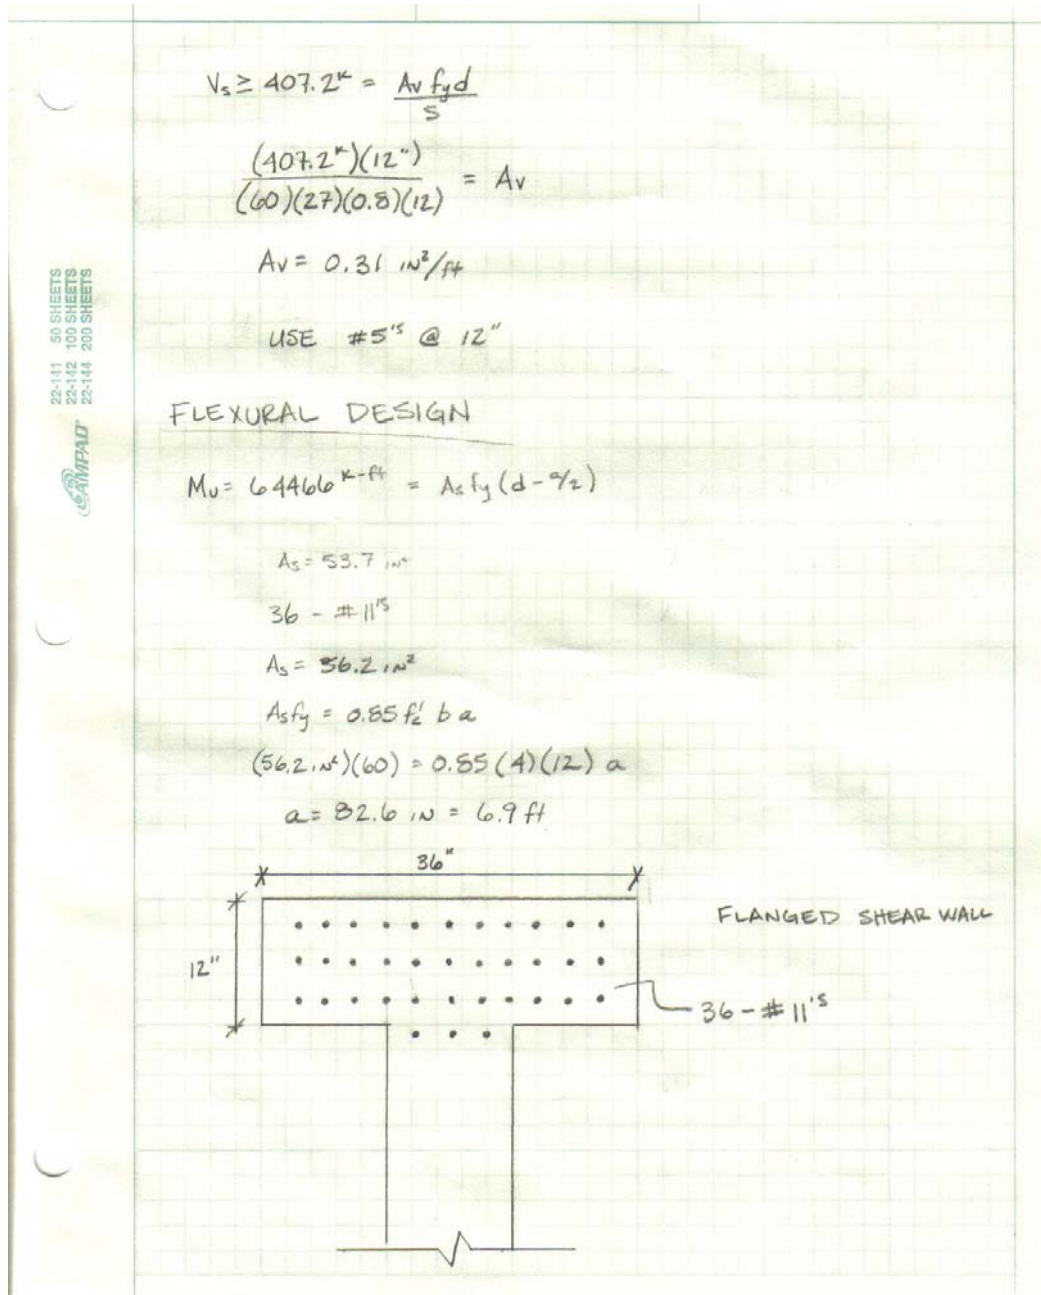 Vs ≥ 407.2ᴷ = Av fyd / S
(407.2ᴷ)(12") / (60)(27)(0.8)(12) = Av
Av = 0.31 IN²/ft
USE #5'S @ 12"
22-141 50 SHEETS
22-142 100 SHEETS
22-144 200 SHEETS
CAMPAD
FLEXURAL DESIGN
Mu = 64466 ᴷ⁻ᶠᵗ = As fy (d - a/2)
As = 53.7 IN²
36 - #11'S
As = 56.2 IN²
Asfy = 0.85 f'c b a
(56.2 IN²)(60) = 0.85 (4)(12) a
a = 82.6 IN = 6.9 ft
36"
FLANGED SHEAR WALL
12"
36 - #11'S